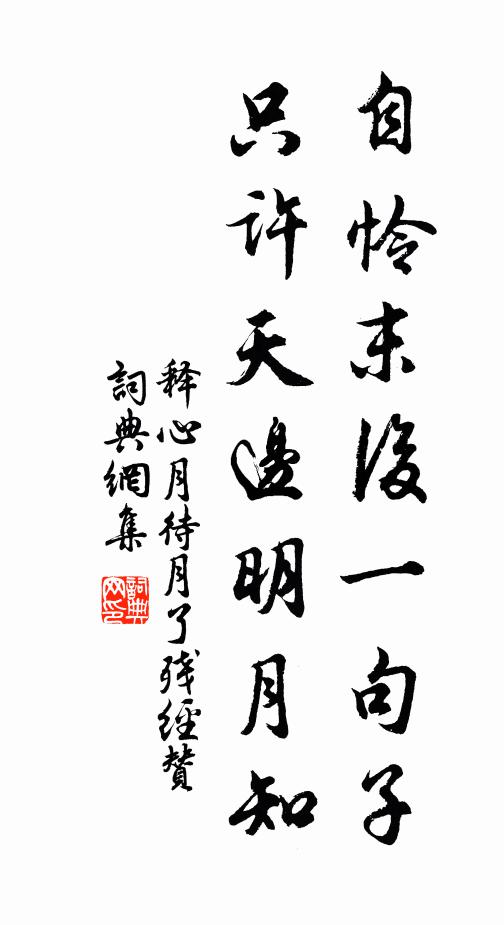 自怜末後一句子
只許天邊明月知
释心月待月了残經贊
詞典網集
詞典
网印